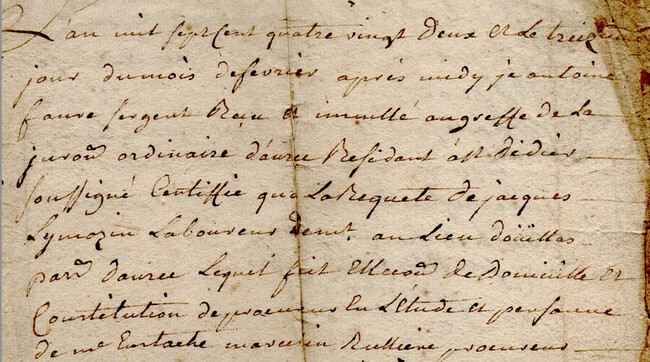 L'an mil sept cent quatre vingt deux et le treizieme
jour du mois de fevrier après midy je antoine
faure sergent Reçu et immullé au greffe de La
juron ordinaire d'aurec Residant a st didier
soussigné Certiffie qu'a La Requete de jacques
Lymozin Laboureur demt. au Lieu doüillas
parr daurec Lequel fait Ellecon de Domicille et
Constitution de procureur En L'Etude et personne
de me Eustache marcelin Rulliere procureur